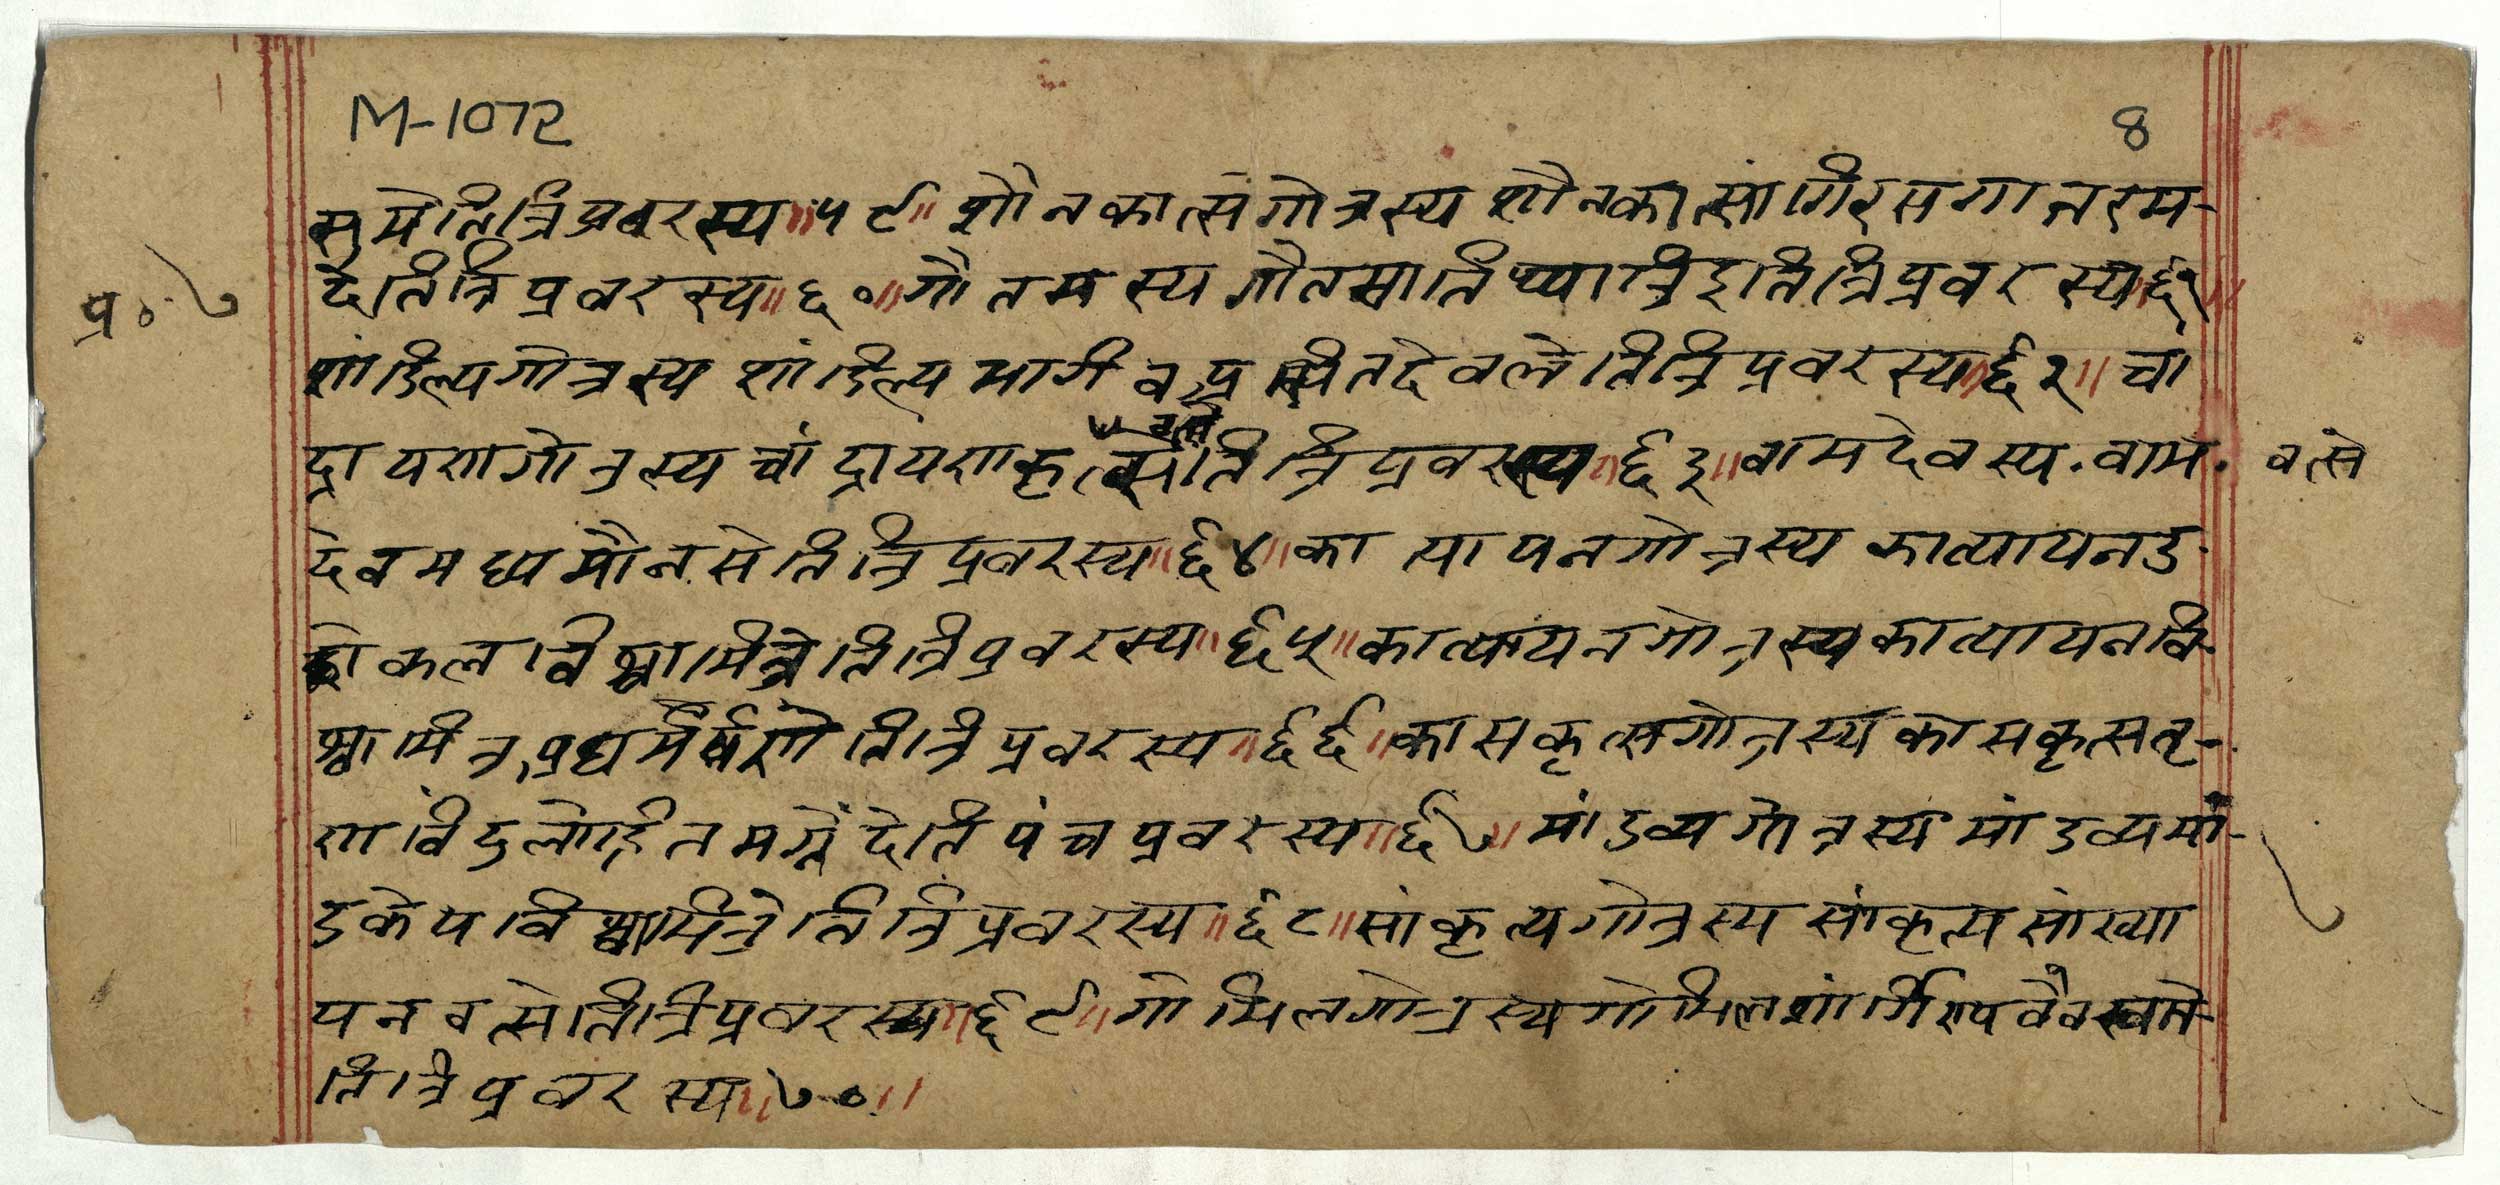 M-1072
8
सुमेतित्रिप्रवरस्य॥५९॥शौनकात्सगोत्रस्य शौनकात्सांगिरसगानरम-
देतित्रिप्रवरस्य॥६०॥गौतमस्य गौतमातिथ्यात्रिइतित्रिप्रवरस्य॥६१॥
प्र० ७
शांडिल्यगोत्रस्य शांडिल्य भार्गव देवलेतित्रिप्रवरस्य॥६२॥चा
द्रायणगोत्रस्य चांद्रायणकृत्सेतित्रिप्रवरस्य॥६३॥वामदेवस्य.वाम.
वत्से
देवमध्यमौनसेतित्रिप्रवरस्य॥६४॥कात्यायनगोत्रस्य कात्यायनउ-
कीलविश्वामित्रेतित्रिप्रवरस्य॥६५॥कात्यायनगोत्रस्य कात्यायनवि-
श्वामित्र तित्रिप्रवरस्य॥६६॥कासकृत्सगोत्रस्य कासकृत्सतृ-
णविंदु देतिपंचप्रवरस्य॥६७॥मांडव्यगोत्रस्य मांडव्यमां-
७
डकेयविश्वामित्रेतित्रिप्रवरस्य॥६८॥सांकृत्यगोत्रस्य सांकृत्यसांख्या
यनवत्सेतित्रिप्रवरस्य॥६९॥गोभिलगोत्रस्य गोभिल
तित्रिप्रवरस्य॥७०॥